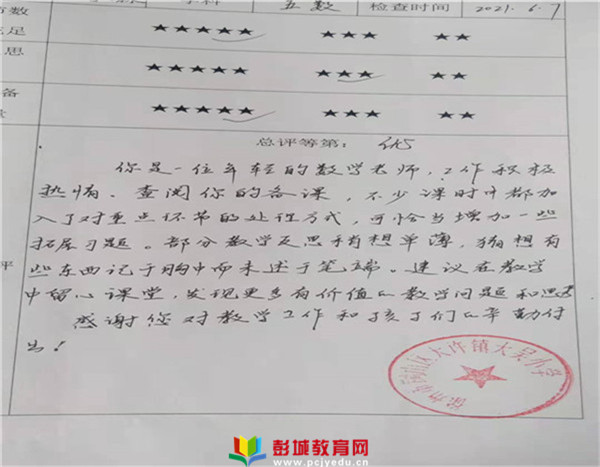 节数 五数 检查时间 2021.6.7
足 ★★★★★ ★★★ ★★
思 ★★★★★ ★★★ ★★
备 ★★★★★ ★★★ ★★
总评等第: 优
你是一位年轻的数学老师,工作积极
热情。查阅你的备课,不少课时中都加
入了对重点环节的处理方式,可恰当增加一些
拓展习题。部分数学反思稍想单薄,猜想有
些东西记于胸中而未述于笔端。建议在教学
中留心课堂,发现更多有价值的数学问题和思考
感谢您对教学工作和孩子们的辛勤付
出!
评
大许镇大吴小学
彭城教育网
www.pcjyedu.cn